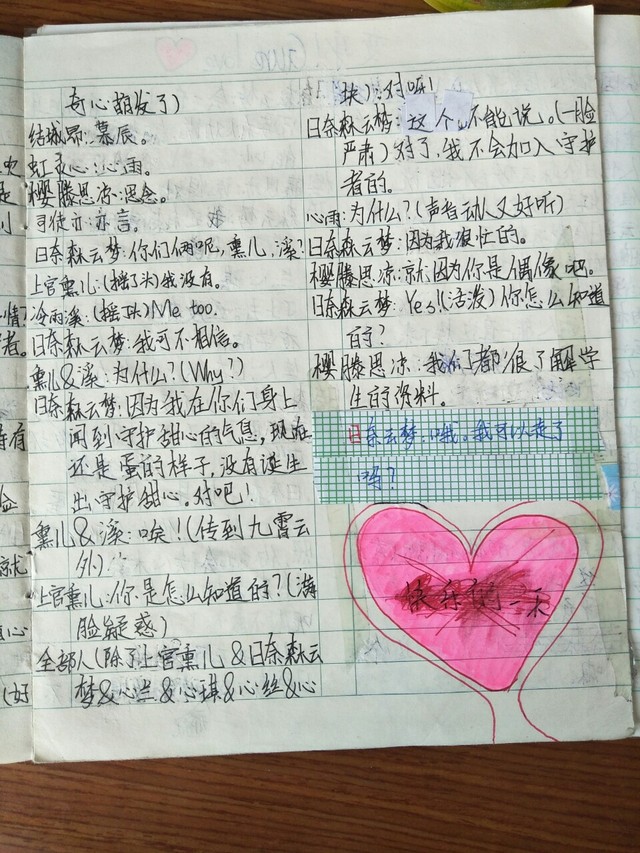 奇心萌发了)
结城昴:慕辰。
虹灵心:心雨。
樱藤思凉:思念。
司使亦:亦言。
日奈森云梦:你们俩呢,熏儿,溪?
上官熏儿:(摇了头)我没有。
冷雨溪:(摇頭)Me too.
日奈森云梦:我可不相信。
熏儿&溪:为什么?(Why?)
日奈森云梦:因为我在你们身上
闻到守护甜心的气息,现在
还是蛋的样子,没有诞生
出守护甜心。对吧!
熏儿&溪:唉!(传到九霄云
外)
上官熏儿:你是怎么知道的?(满
脸疑惑)
全部人(除了上官熏儿&日奈森云
梦&心兰&心琪&心丝&心
玦):对呀!
日奈森云梦:这个不能说。(一脸
严肃)对了,我不会加入守护
者的。
心雨:为什么?(声音动人又好听)
日奈森云梦:因为我很忙的。
樱藤思凉:就因为你是偶像吧。
日奈森云梦:Yes!(活泼)你怎么知道
的?
樱藤思凉:我们都很了解学
生的资料。
日奈云梦:哦。我可以走了
吗?
快乐的一天